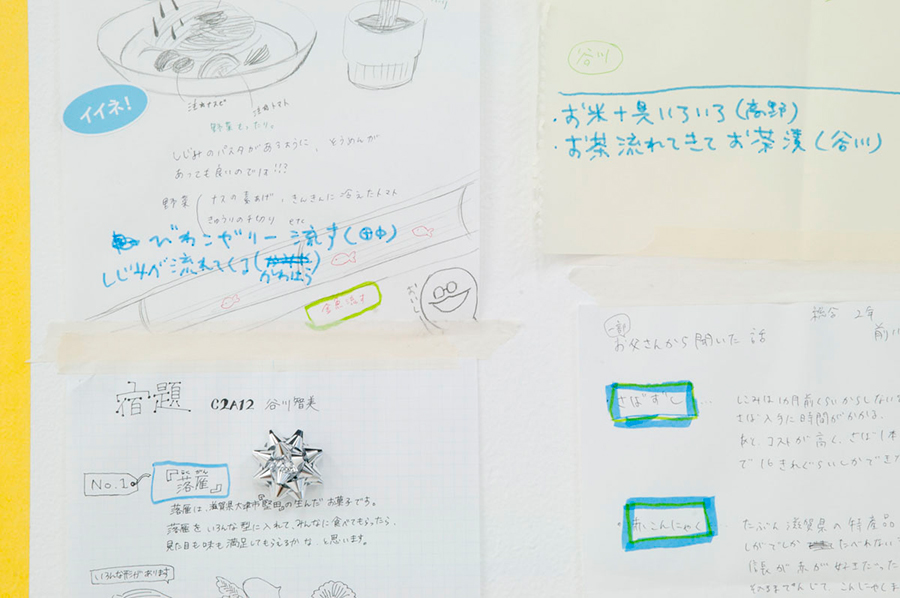 イイネ!
冷やしナスビ
冷やしトマト
野菜もったり。
しじみのパスタがあるように、そうめんが
あっても良いのでは!!?
野菜
ナスの素あげ、きんきんに冷えたトマト
きゅうりの千切り etc
びわこゼリー流す(田中)
しじみが流れてくる(
かわはら)
金魚流す
おいしー
宿題
C2A12 谷川智美
No.1
らくがん
『落雁』
落雁は、滋賀県大津市『堅田』の生んだお菓子です。
落雁をいろんな型に入れて、みんなに食べてもらったら、
見た目も味も満足してもらえるかな、と思います。
いろんな形があります
谷川
・お米+具いろいろ(高野)
・お茶流れてきてお茶漬(谷川)
総合 2年
前川
お父さんから聞いた話
・さばずし…
しこみは1カ月前くらいからしない
さば入手に時間がかかる。
コストが高く、さば1本
で16きれぐらいしかでき
・赤こんにゃく
たぶん滋賀県の特産品
しがでしか たべれない
信長が赤が好きだった